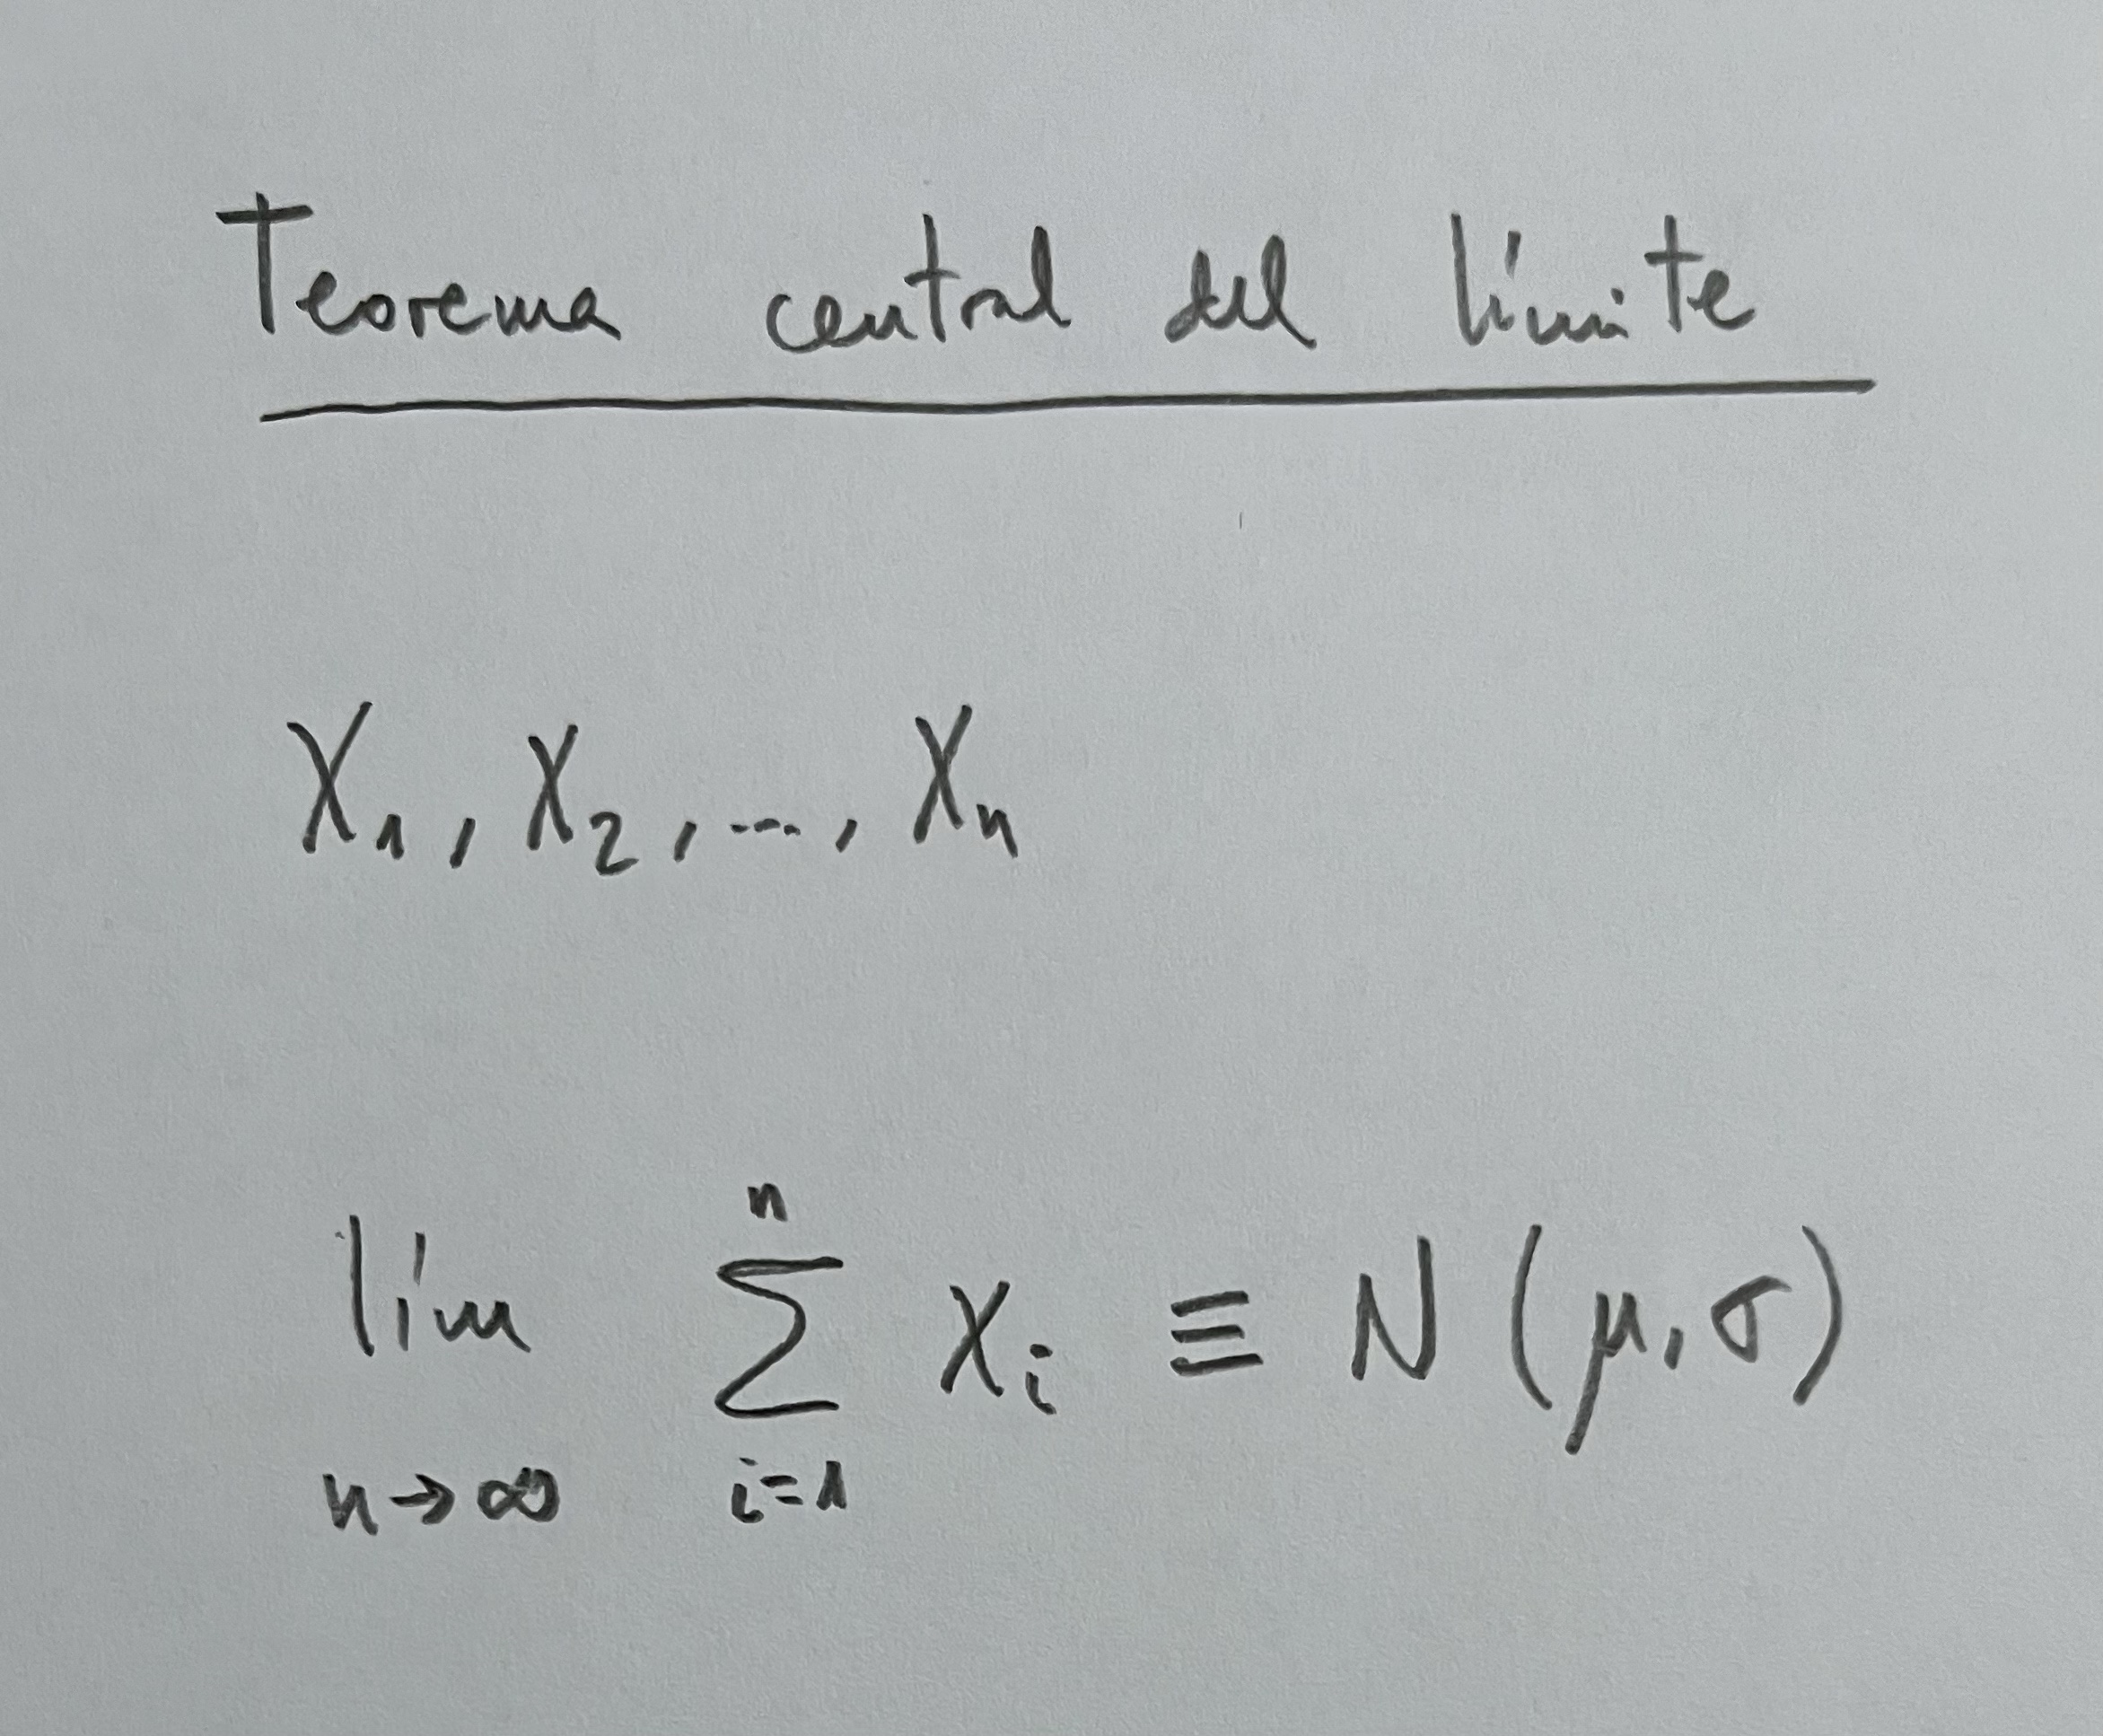 Teorema central del límite
X₁, X₂, ..., Xₙ
lím n→∞ ∑ i=1 n Xᵢ ≡ N(μ,σ)